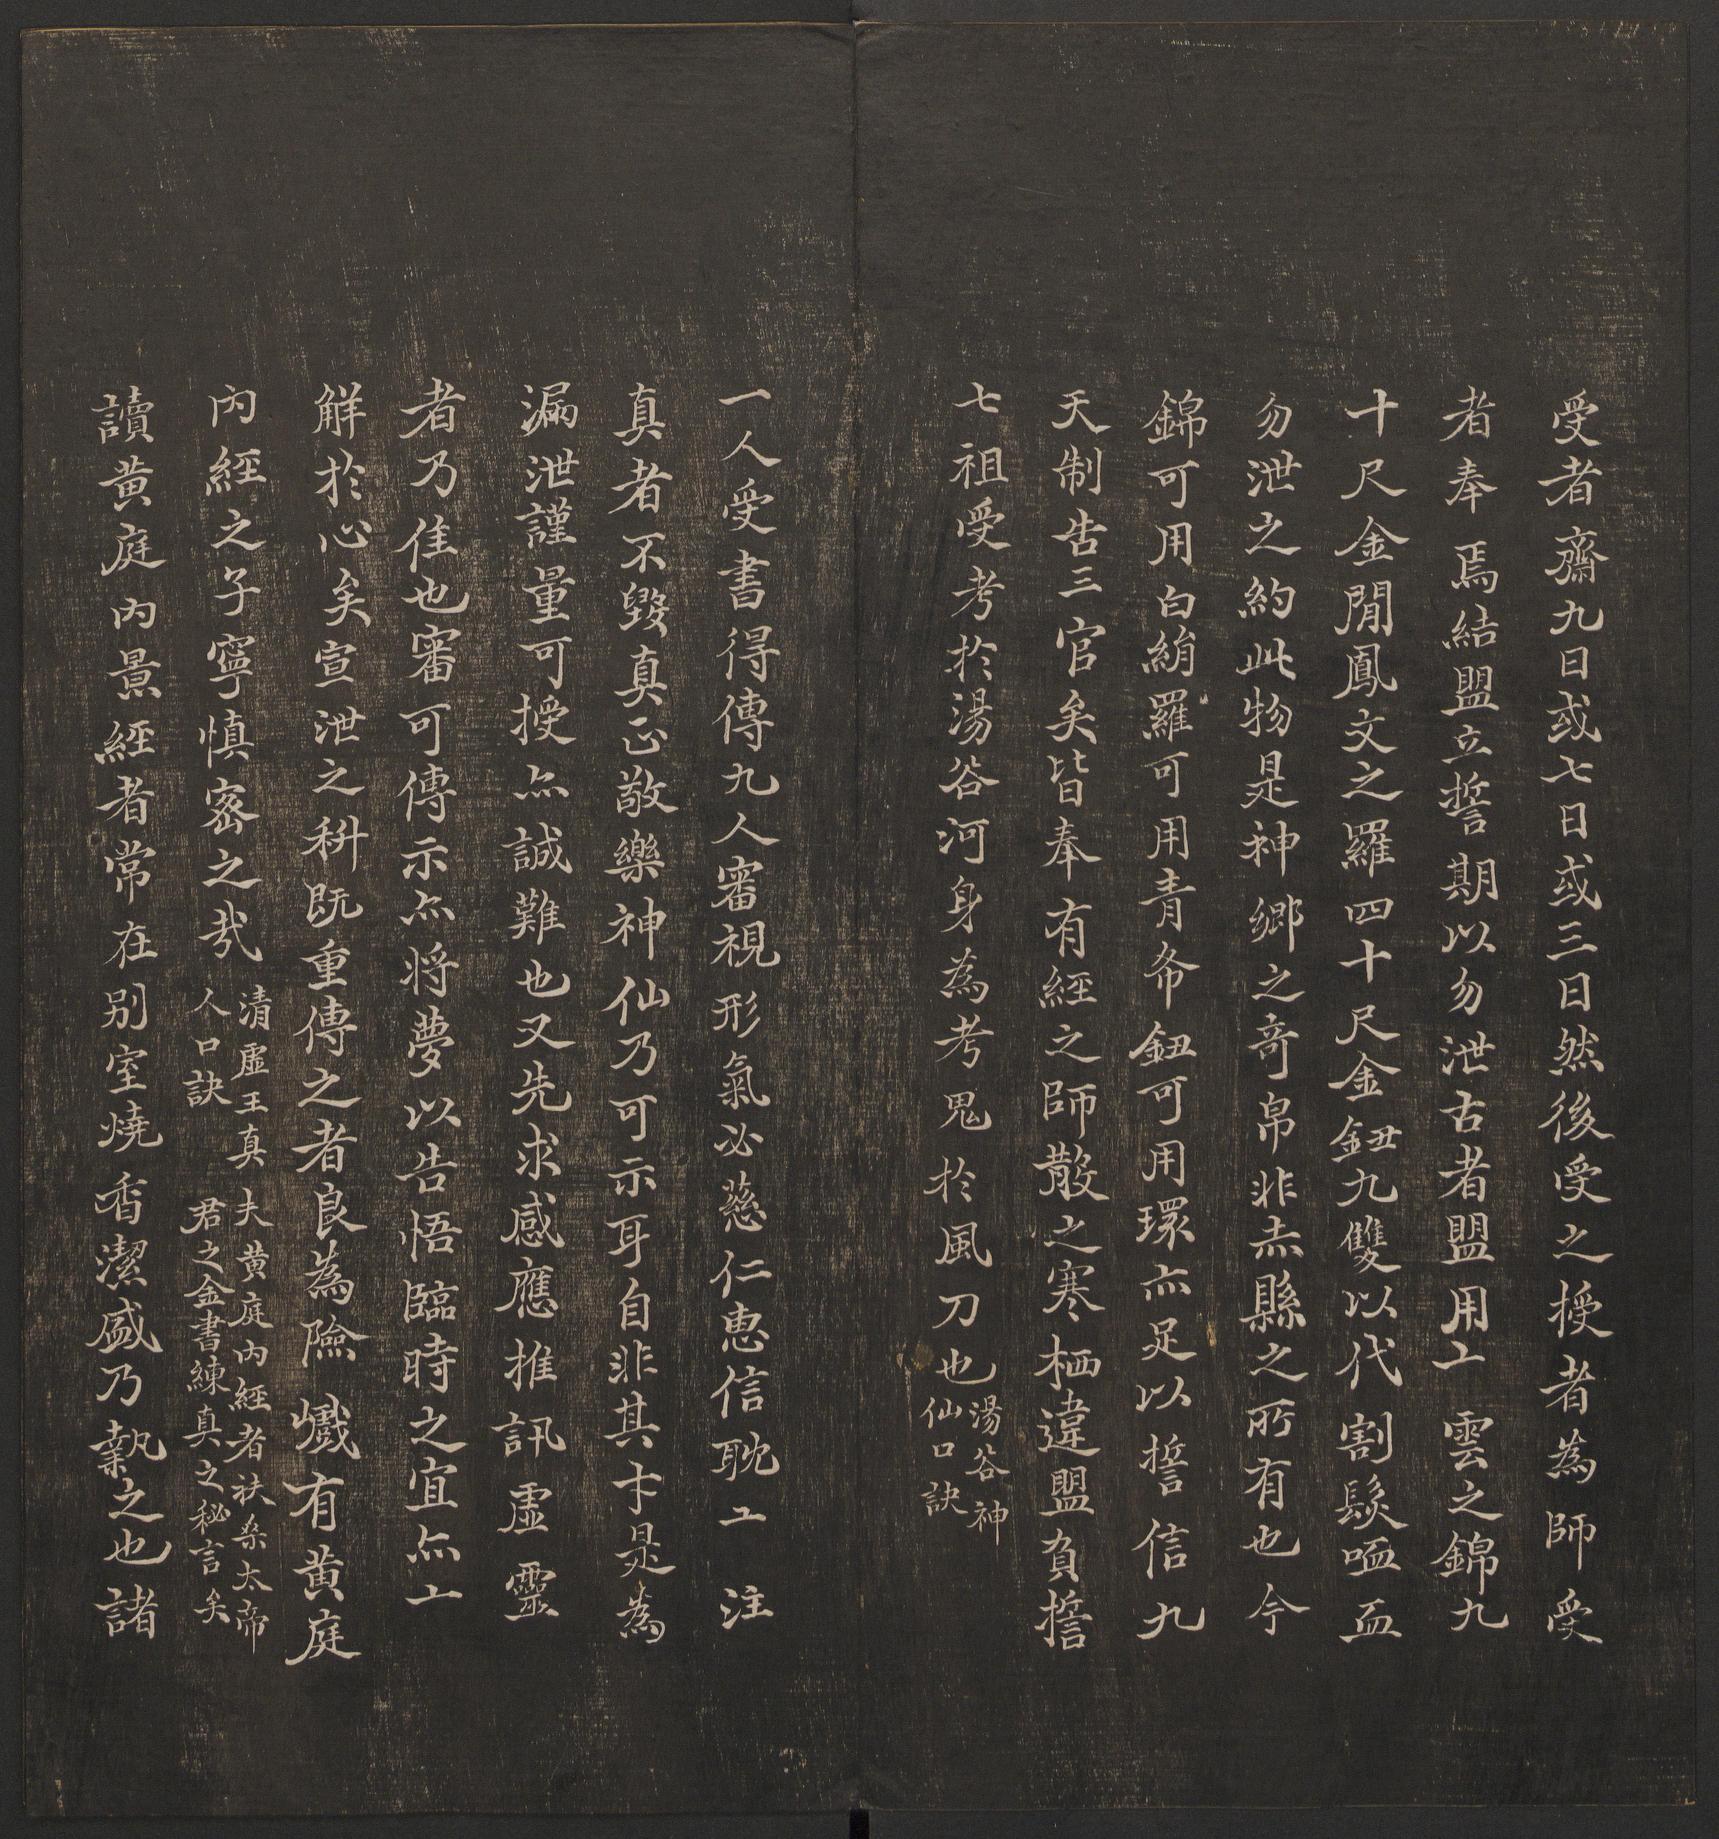 受者齋九日或七日或三日然後受之授者為師受
者奉焉結盟立誓期以勿泄古者盟用㆓雲之錦九
十尺金閒鳳文之羅四十尺金鈕九雙以代割髮歃血
勿泄之約此物是神鄉之奇帛非赤縣之所有也今
錦可用白絹羅可用青布鈕可用環亦足以誓信九
天制告三官矣皆奉有經之師散之寒栖違盟負誓
七祖受考於湯谷河身為考鬼於風刀也
湯谷神
仙口訣
一人受書得傳九人審視形氣必慈仁惠信耽㆓注
真者不毀真正敬樂神仙乃可示耳自非其才是為
漏泄謹量可授亦誠難也又先求感應推訊虛靈
者乃佳也審可傳示亦將夢以告悟臨時之宜亦㆖
解於心矣宣泄之科既重傳之者良為險巇有黃庭
內經之子寧慎密之哉
清虛王真
人口訣
夫黃庭內經者扶桑太帝
君之金書練真之秘言矣
讀黃庭內景經者常在別室燒香潔盛乃執之也諸